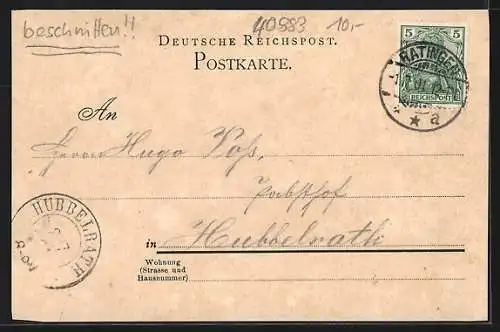 beschnitten!!
40883 10,-
DEUTSCHE REICHSPOST.
POSTKARTE.
5 5
RATINGEN
REICHSPOST
* a
An
Herrn Hugo Voss,
HUBBELRATH
in Hubbelrath
Wohnung
(Strasse und
Hausnummer)